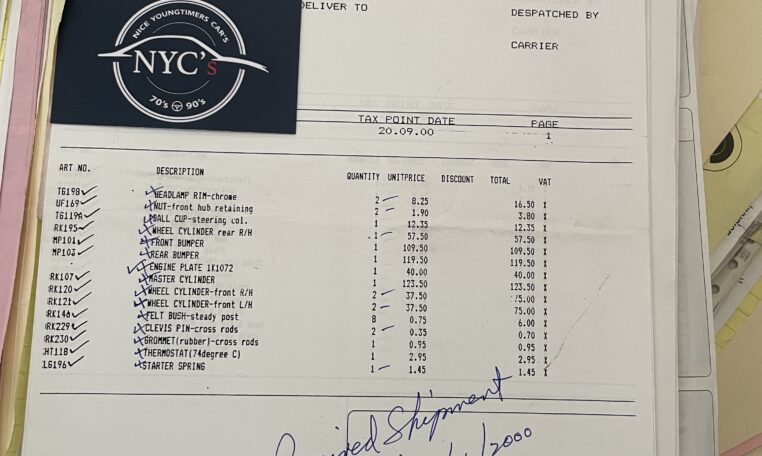 NICE YOUNGTIMERS CAR'S
NYC's
70's 90's
DELIVER TO
DESPATCHED BY
CARRIER
TAX POINT DATE PAGE
20.09.00 1
ART NO. DESCRIPTION QUANTITY UNITPRICE DISCOUNT TOTAL VAT
TG198 HEADLAMP RIM-chrome 2 8.25 16.50 X
UF169 NUT-front hub retaining 2 1.90 3.80 X
TG119A BALL CUP-steering col. 1 12.35 12.35 X
RK195 WHEEL CYLINDER rear R/H 1 57.50 57.50 X
MP101 FRONT BUMPER 1 109.50 109.50 X
MP103 REAR BUMPER 1 119.50 119.50 X
ENGINE PLATE 1K1072 1 40.00 40.00 X
RK107 MASTER CYLINDER 1 123.50 123.50 X
RK120 WHEEL CYLINDER-front R/H 2 37.50 75.00 X
RK121 WHEEL CYLINDER-front L/H 2 37.50 75.00 X
RK146 FELT BUSH-steady post 8 0.75 6.00 X
RK229 CLEVIS PIN-cross rods 2 0.35 0.70 X
RK230 GROMMET(rubber)-cross rods 1 0.95 0.95 X
HT118 THERMOSTAT(74degree C) 1 2.95 2.95 X
LG196 STARTER SPRING 1 1.45 1.45 X
Shipment
/2000